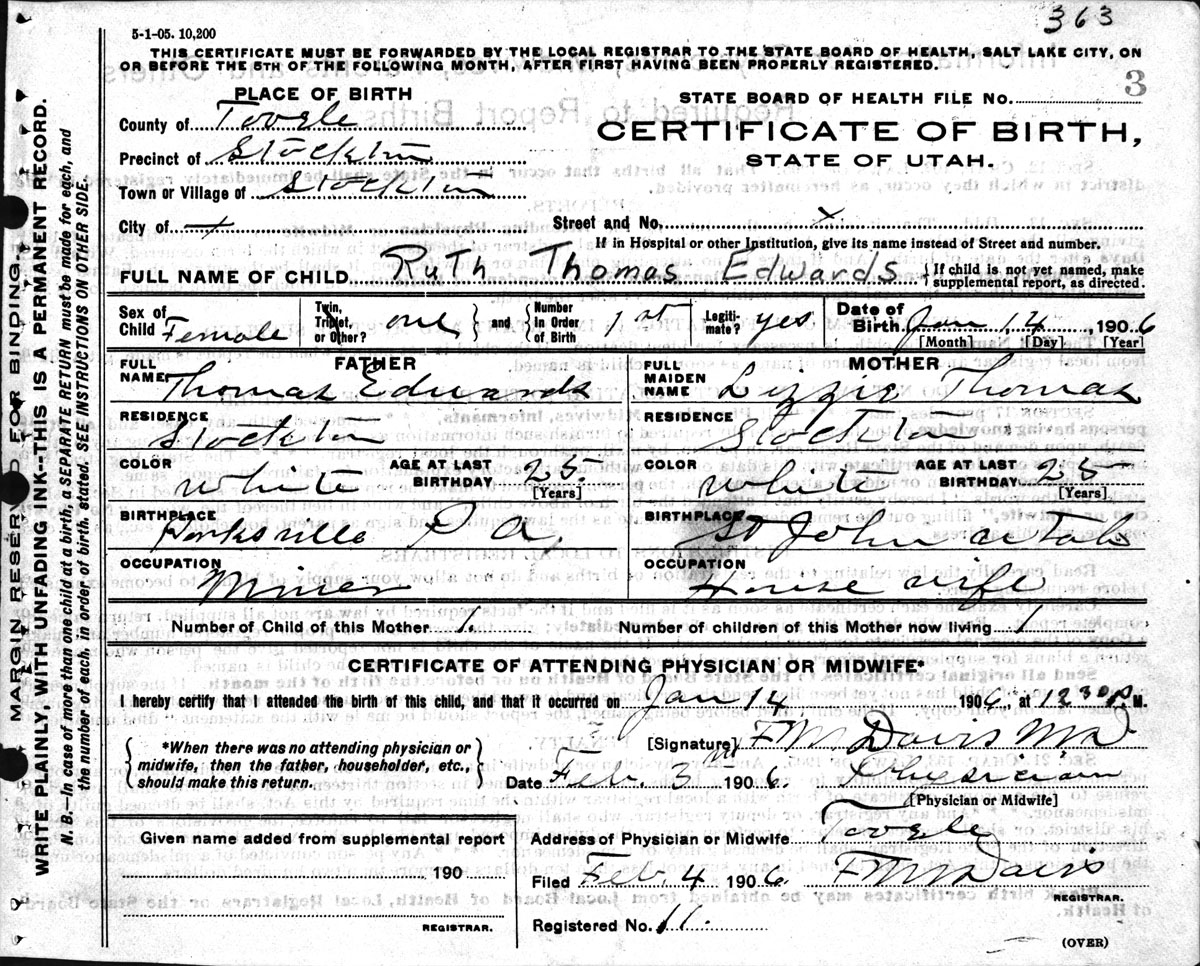 363
5-1-05. 10,200
THIS CERTIFICATE MUST BE FORWARDED BY THE LOCAL REGISTRAR TO THE STATE BOARD OF HEALTH, SALT LAKE CITY, ON
OR BEFORE THE 5TH OF THE FOLLOWING MONTH, AFTER FIRST HAVING BEEN PROPERLY REGISTERED.
3
MARGIN RESERVED FOR BINDING.
WRITE PLAINLY, WITH UNFADING INK--THIS IS A PERMANENT RECORD.
N. B.--In case of more than one child at a birth, a SEPARATE RETURN must be made for each, and
the number of each, in order of birth, stated. SEE INSTRUCTIONS ON OTHER SIDE.
PLACE OF BIRTH
County of Tooele
Precinct of Stockton
Town or Village of Stockton
STATE BOARD OF HEALTH FILE No.
CERTIFICATE OF BIRTH,
STATE OF UTAH.
City of x Street and No. x
If in Hospital or other Institution, give its name instead of Street and number.
FULL NAME OF CHILD Ruth Thomas Edwards { If child is not yet named, make
supplemental report, as directed.
Sex of Child Female Twin, Triplet, or Other? one } and { Number In Order of Birth 1st Legiti-mate? yes Date of Birth Jan 14, 1906
[Month] [Day] [Year]
FATHER MOTHER
FULL NAME Thomas Edwards FULL MAIDEN NAME Lizzie Thomas
RESIDENCE Stockton RESIDENCE Stockton
COLOR White AGE AT LAST BIRTHDAY 25 [Years] COLOR White AGE AT LAST BIRTHDAY 25 [Years]
BIRTHPLACE Pa. BIRTHPLACE St John Utah
OCCUPATION Miner OCCUPATION House wife
Number of Child of this Mother 1. Number of children of this Mother now living 1
CERTIFICATE OF ATTENDING PHYSICIAN OR MIDWIFE*
I hereby certify that I attended the birth of this child, and that it occurred on Jan 14 1906, at 12 30 P. M.
{ *When there was no attending physician or
midwife, then the father, householder, etc.,
should make this return. }
[Signature] F M Davis M D
Date Feb. 3rd 1906. Physician
[Physician or Midwife]
Given name added from supplemental report
190
REGISTRAR.
Address of Physician or Midwife Tooele
Filed Feb. 4 1906. F M Davis
REGISTRAR.
Registered No. 11.
(OVER)